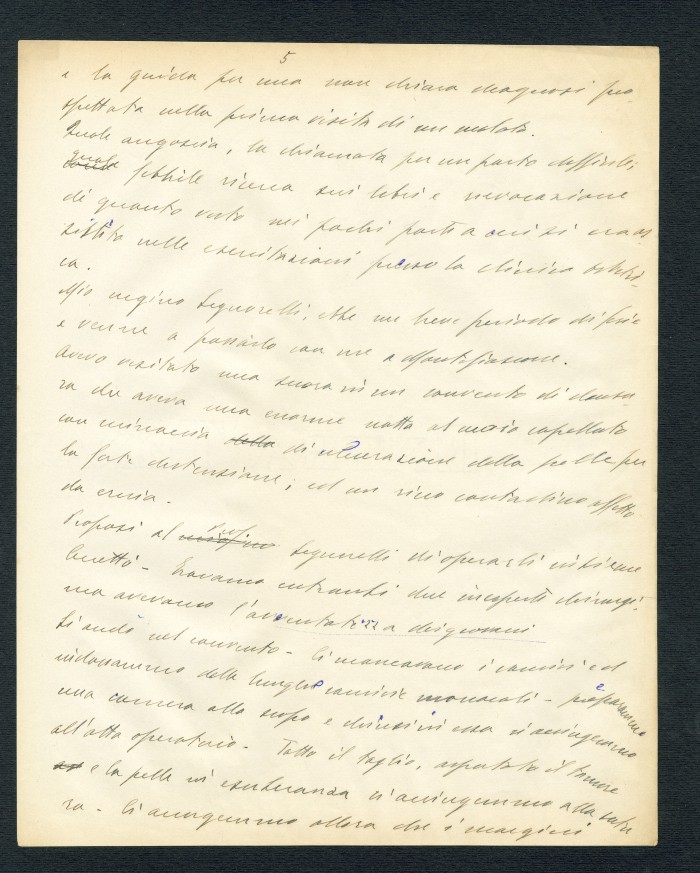 5
e la guida per una non chiara diagnosi pro
spettata nella prima visita di un malato.
Quale angoscia, la chiamata per un parto difficile;
quale febbrile ricerca sui libri e rievocazione
di quanto visto nei pochi parti a cui si era as
sistito nelle esercitazioni presso la clinica ostetri-
ca.
Mio cugino Signorelli, che un breve periodo di ferie
venne a passarlo con me a Montefiascone.
Avevo visitato una suora in un convento di clausu
ra che aveva una enorme natta al cuoio capelluto
con minaccia della di ulcerazione della pelle per
la forte distensione; ed un ricco contadino affetto
da ernia.
Proposi al Prof. Signorelli di operarli insieme
Accettò - Eravamo entrambi due inesperti chirurgi,
ma avevamo l'avventatezza dei giovani
Si andò nel convento - Ci mancavano i camici ed
indossammo delle lunghe camicie monacali - preparammo
una camera allo scopo e chiusi in essa ci accingemmo
all'atto operatorio - Fatto il taglio, asportato il tumore
e la pelle in esuberanza ci accingemmo alla sutu
ra - Ci accorgemmo allora che i margini